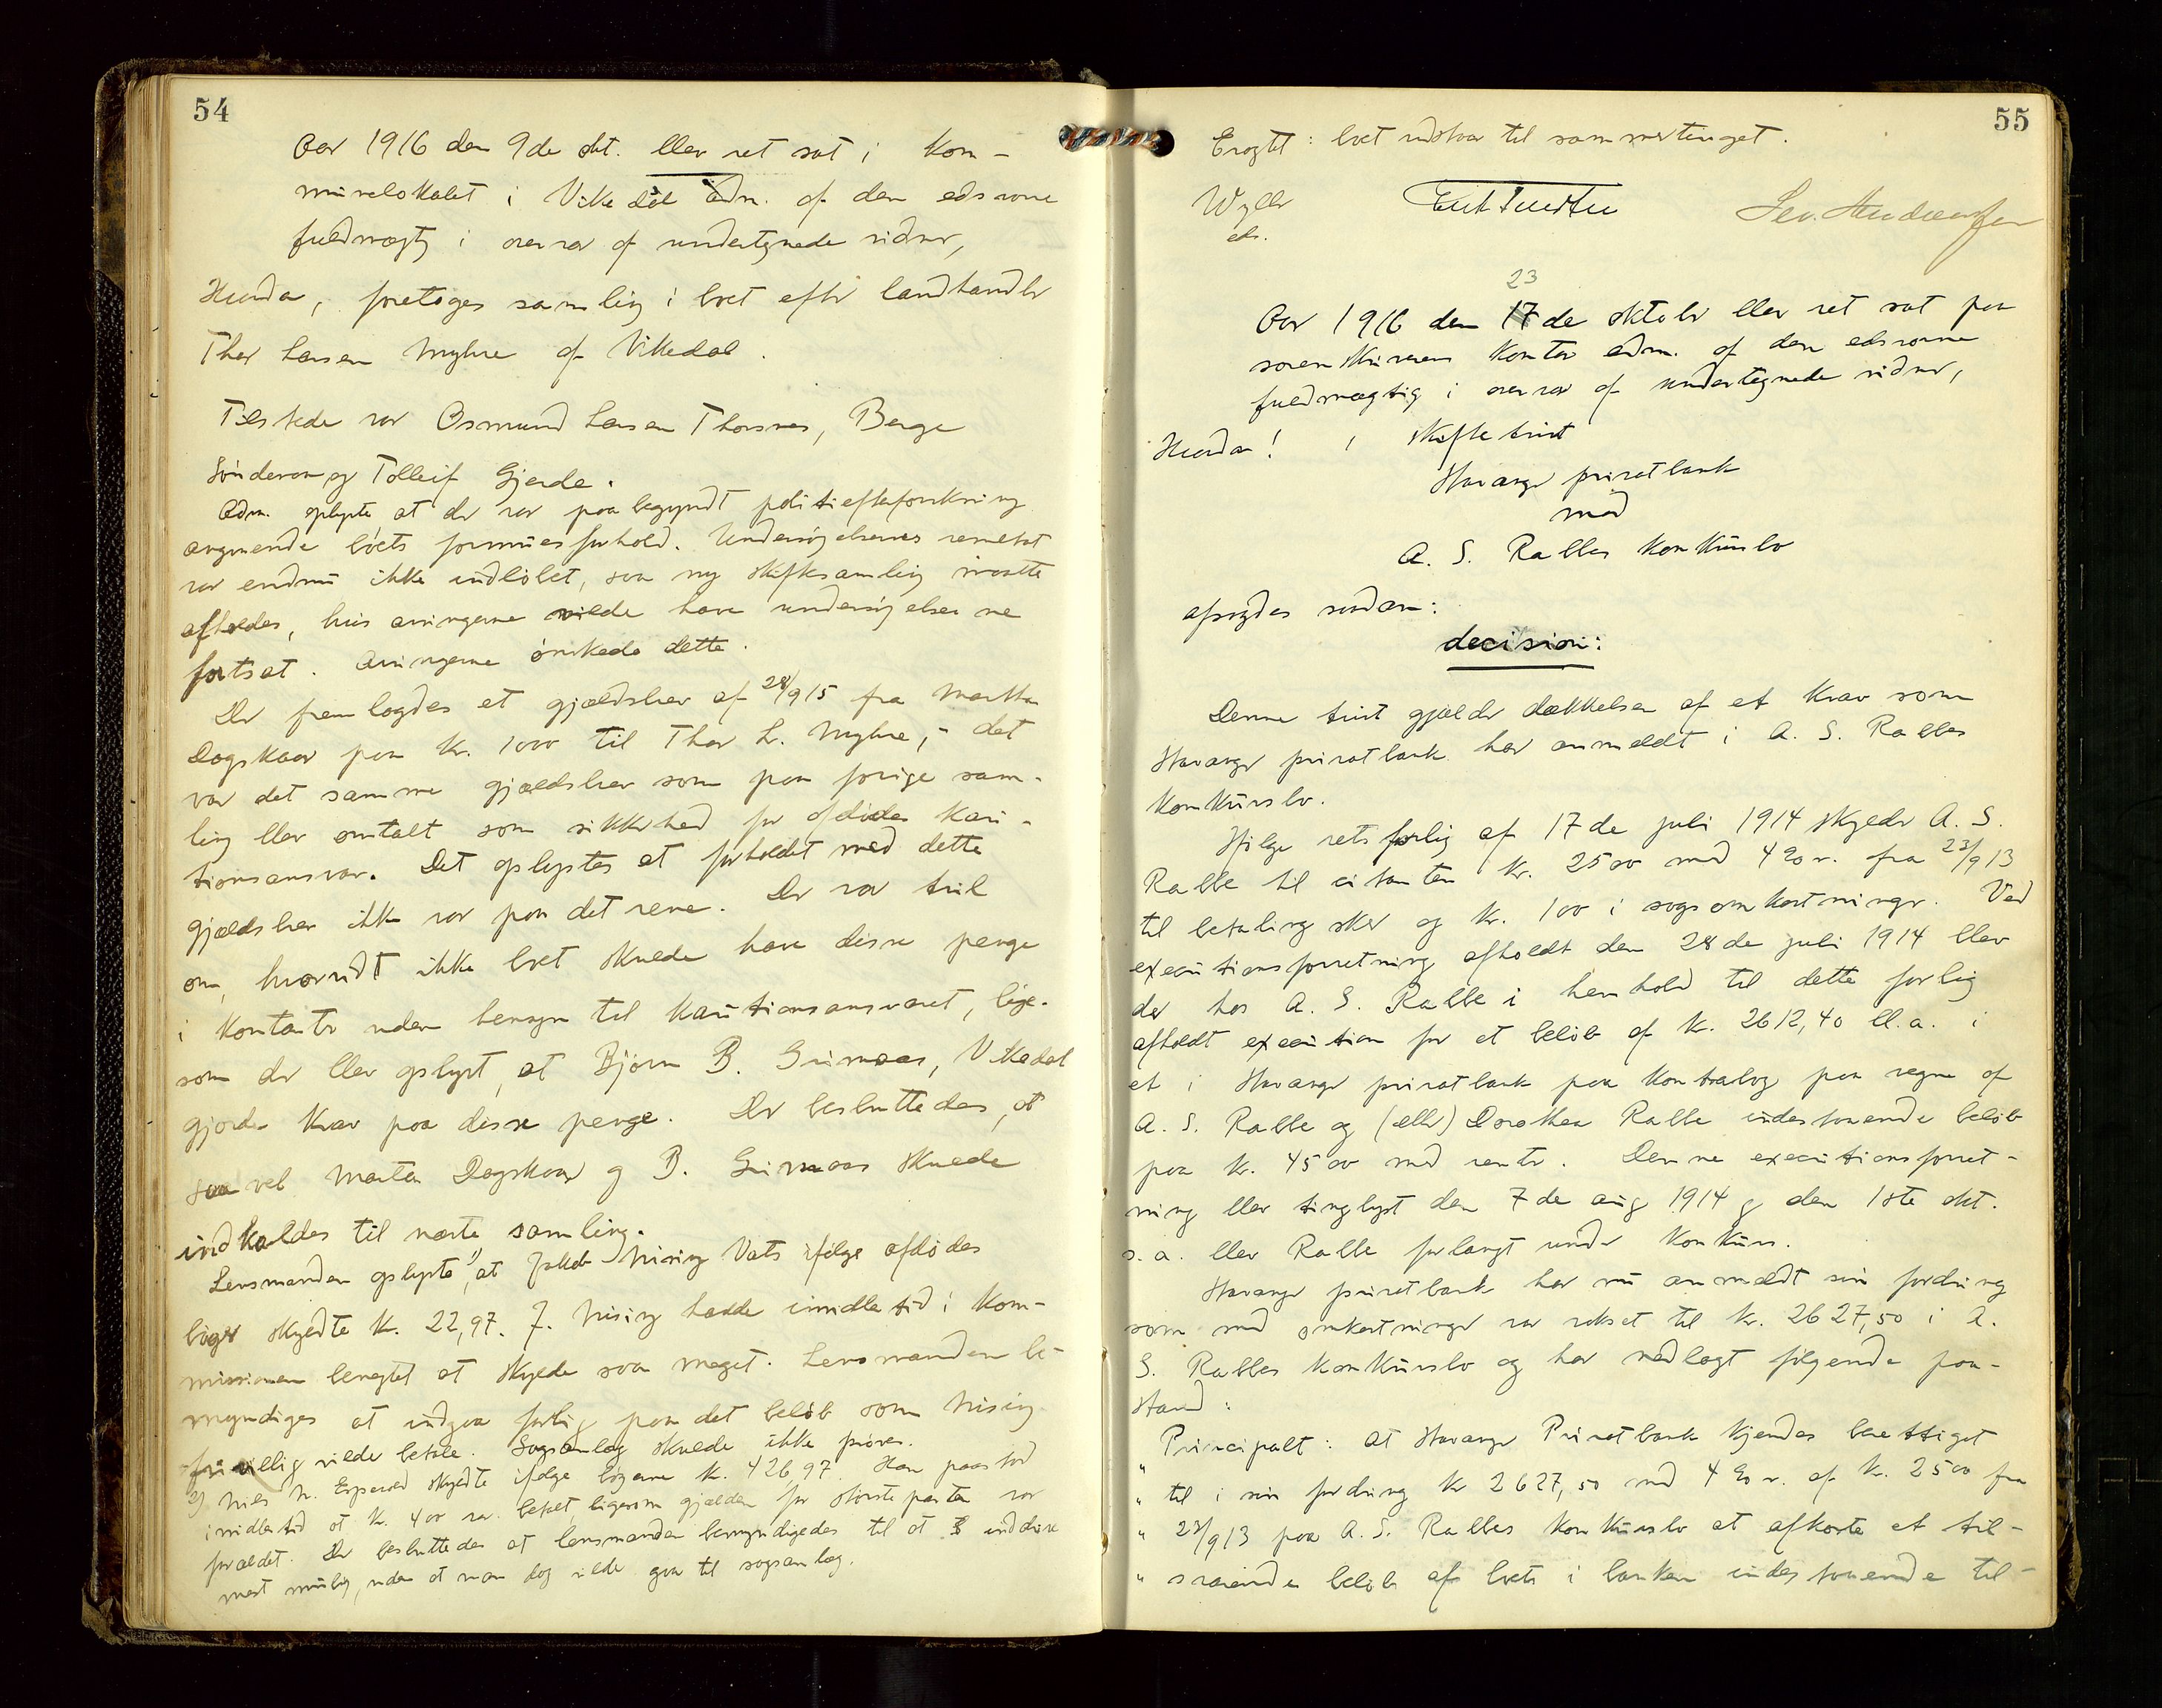 54
Aar 1916 den 9de okt. blev ret sat i kom-
munelokalet i Vikedal adm. af den edsvorne
fuldmægtig i overvær af undertegnede vidner,
Hvorda, foretoges samling i boet efter landhandler
Thor Larsen Myhre af Vikedal.
Tilstede var Osmund Larsen Thorsnes, Berge
Sønderon og Tolleif Gjerde.
Adm. oplyste at der var paabegyndt politiefterforskning
angaaende boets formuesforhold. Undersøgelsernes resultat
var endnu ikke indløbet, saa ny skiftesamling maatte
afholdes, hvis arvingerne vilde have undersøgelserne
fortsat. Arvingerne ønskede dette.
Der fremlagdes et gjældsbrev af 28/9 15 fra Martha
Dagskaar paa kr. 1000 til Thor L. Myhre, - det
var det samme gjældsbrev som paa forrige sam-
ling blev omtalt som sikkerhed for afdødes kau-
tionsansvar. Det oplystes at forholdet med dette
gjældsbrev ikke var paa det rene. Der var tvil
om, hvorvidt ikke boet skulde have disse penge
i kontanter uden hensyn til kautionsansvaret, lige-
som der blev oplyst, at Bjørn B. Grimaas, Vikedal
gjorde krav paa disse penge. Der besluttedes, at
saavel Marta Dagskaar og B. Grimaas skulde
indkaldes til næste samling.
Lensmanden oplyste 1) at Jakob Mising Vats ifølge afdødes
bøger skyldte kr. 22,97. J. Mising havde imidlertid i kom-
missionen benegtet at skylde saa meget. Lensmanden be-
myndiges at indgaa forlig paa det beløb som Mising
frivillig vilde betale. Søgsanlæg skulde ikke prøves.
2) Nils N. skyldte ifølge bøgerne kr. 426,97. Han paastod
imidlertid at kr. 400 var betalt, ligesom gjælden for størsteparten var
forældet. Der besluttedes at lensmanden bemyndigedes til at inddrive
mest mulig, uden at man dog vilde gaa til søgsanlæg.
55
Eragtet: boet udstaar til sommertinget.
Wyller
eds.
23
Aar 1916 den 17de oktober blev ret sat paa
sorenskriverens kontor adm. af den edsvorne
fuldmægtig i overvær af undertegnede vidner,
Hvorda! i skiftetvist
Stavanger privatbank
mod
A. S. Rabbes konkursbo
afsagdes saadan:
decision:
Denne tvist gjælder dækkelsen af et krav som
Stavanger privatbank har anmeldt i A. S. Rabbes
konkursbo.
Ifølge retsforlig af 17de juli 1914 skylder A. S.
Rabbe til citanten kr. 2500 med 4 % r. fra 23/9 13
til betaling sker og kr. 100 i søgsomkostninger. Ved
executionsforretning afholdt den 28de juli 1914 blev
der hos A. S. Rabbe i henhold til dette forlig
afholdt execution for et beløb af kr. 2612,40 bl.a. i
et i Stavanger privatbank paa kontrabog paa regning af
A. S. Rabbe og (eller) Dorothea Rabbe indestaaende beløb
paa kr. 4500 med renter. Denne executionsforret-
ning blev tinglyst den 7de aug 1914 og den 1ste okt.
s.a. blev Rabbe forlangt under konkurs.
Stavanger privatbank har nu anmeldt sin fordring
som med omkostninger var vokset til kr. 2627,50 i A.
S. Rabbes konkursbo og har nedlagt følgende paa-
stand:
" Principalt: at Stavanger Privatbank kjendes berettiget
" til i sin fordring kr 2627,50 med 4 % r. af kr. 2500 fra
" 23/9 13 paa A. S. Rabbes konkursbo at afkorte et til-
" svarende beløb af boets i banken indestaaende til-